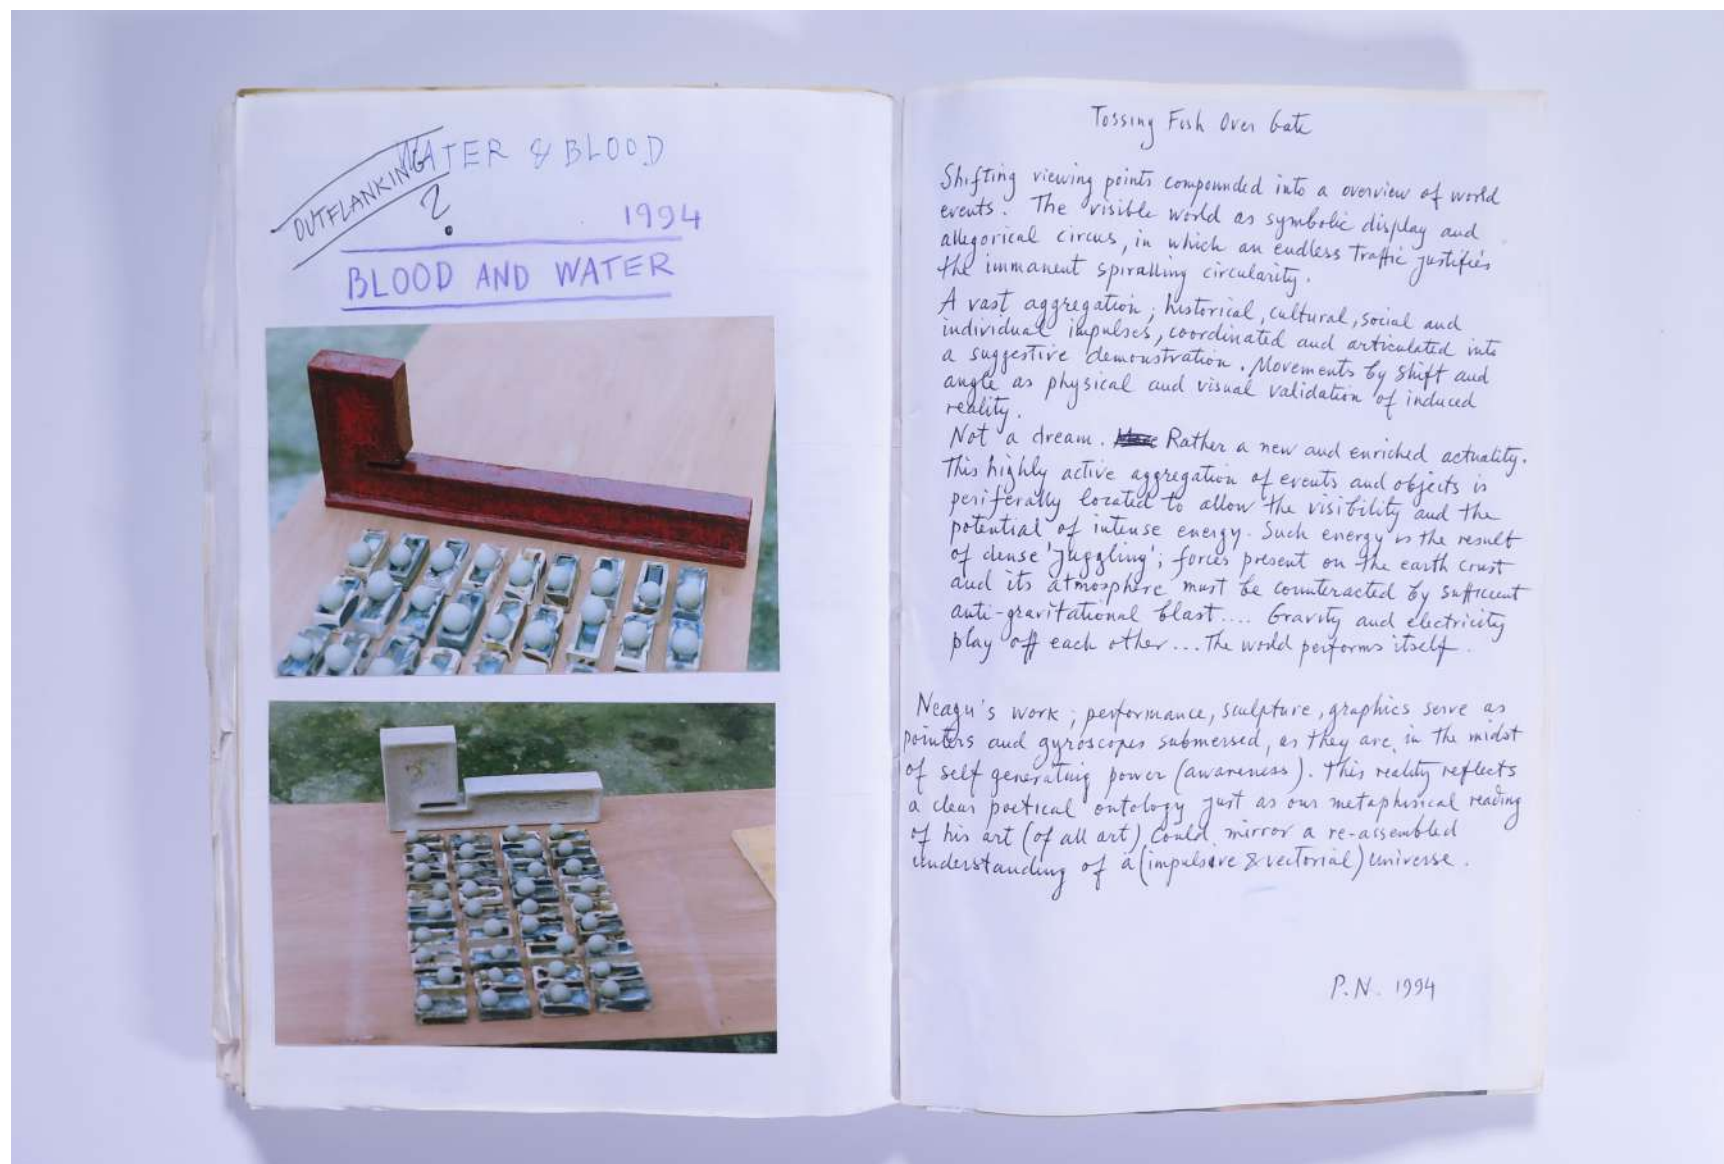 OUTFLANKING
WATER & BLOOD
?
1994
BLOOD AND WATER
Tossing Fish Over Gate
Shifting viewing points compounded into a overview of world
events. The visible world as symbolic display and
allegorical circus, in which an endless Traffic justifies
the immanent spiralling circularity.
A vast aggregation; historical, cultural, social and
individual impulses, coordinated and articulated into
a suggestive demonstration. Movements by shift and
angle as physical and visual validation of induced
reality.
Not a dream. Rather a new and enriched actuality.
This highly active aggregation of events and objects is
periferally located to allow the visibility and the
potential of intense energy. Such energy is the result
of dense 'Juggling'; forces present on the earth crust
and its atmosphere must be counteracted by sufficient
anti-gravitational blast.... Gravity and electricity
play off each other... The world performs itself.
Neagu's work; performance, sculpture, graphics serve as
pointers and gyroscopes submersed, as they are, in the midst
of self generating power (awareness). This reality reflects
a clear poetical ontology just as our metaphisical reading
of his art (of all art) could mirror a re-assembled
understanding of a (impulsive & vectorial) universe.
P.N. 1994